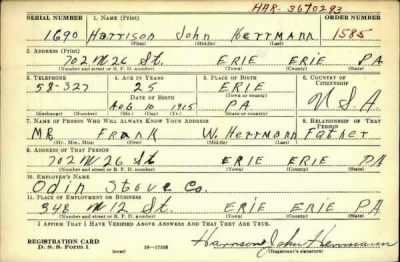 HAR-3670293
SERIAL NUMBER 1. NAME (Print) ORDER NUMBER
1690 Harrison John Herrmann 1585
(First) (Middle) (Last)
2. ADDRESS (Print)
702 W 26 St. ERIE ERIE PA
(Number and street or R. F. D. number) (Town) (County) (State)
3. TELEPHONE 4. AGE IN YEARS 5. PLACE OF BIRTH 6. COUNTRY OF CITIZENSHIP
58-327 25 ERIE
DATE OF BIRTH (Town or county)
AUG 10 1915 PA U.S.A.
(Exchange) (Number) (Mo.) (Day) (Yr.) (State or country)
7. NAME OF PERSON WHO WILL ALWAYS KNOW YOUR ADDRESS 8. RELATIONSHIP OF THAT PERSON
MR Frank W. Herrmann Father
(Mr., Mrs., Miss) (First) (Middle) (Last)
9. ADDRESS OF THAT PERSON
702 W 26 St ERIE ERIE PA
(Number and street or R. F. D. number) (Town) (County) (State)
10. EMPLOYER'S NAME
Odin Stove Co.
11. PLACE OF EMPLOYMENT OR BUSINESS
348 W 12 St. ERIE ERIE PA
(Number and street or R. F. D. number) (Town) (County) (State)
I AFFIRM THAT I HAVE VERIFIED ABOVE ANSWERS AND THAT THEY ARE TRUE.
REGISTRATION CARD
D. S. S. Form 1 (over) 16-17105 Harrison John Herrmann
(Registrant's signature)